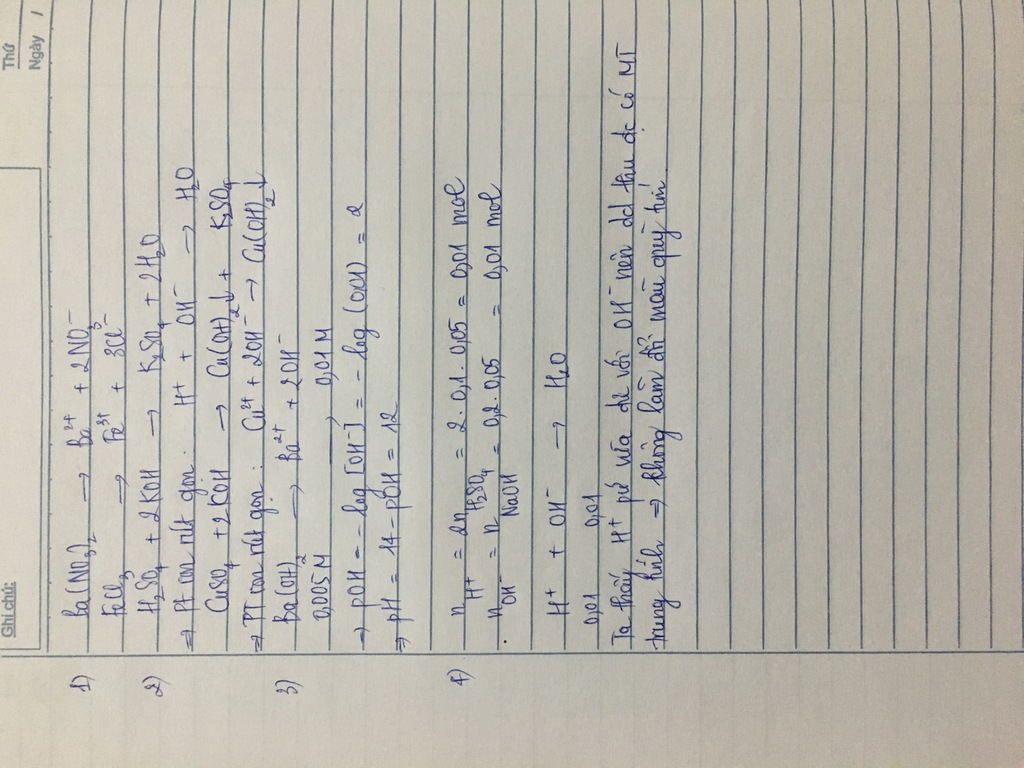 Ghi chú:
Thứ
Ngày /
1) Ba(NO₃)₂ → Ba²⁺ + 2NO₃⁻
FeCl₃ → Fe³⁺ + 3Cl⁻
2) H₂SO₄ + 2KOH → K₂SO₄ + 2H₂O
⇒ Pt ion rút gọn: H⁺ + OH⁻ → H₂O
CuSO₄ + 2KOH → Cu(OH)₂↓ + K₂SO₄
⇒ PT ion rút gọn: Cu²⁺ + 2OH⁻ → Cu(OH)₂↓
3) Ba(OH)₂ → Ba²⁺ + 2OH⁻
0,005M → 0,01M
→ pOH = -log[OH⁻] = -log(0,01) = 2
⇒ pH = 14 - pOH = 12
4) n H⁺ = 2n H₂SO₄ = 2.0,1.0,05 = 0,01 mol
n OH⁻ = n NaOH = 0,2.0,05 = 0,01 mol
H⁺ + OH⁻ → H₂O
0,01 0,01
Ta thấy H⁺ pứ vừa đủ với OH⁻ nên dd thu đc có MT
trung tính ⇒ không làm đổi màu quỳ tím